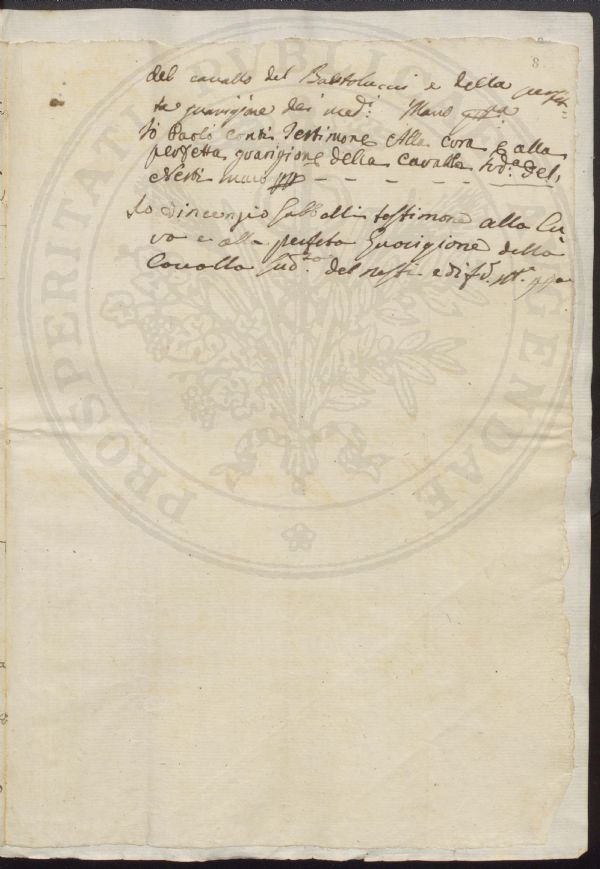 8
del cavallo del Bartolucci e della perfet=
ta guarigione dei med.i Mano pp.a
Io Paolo Conti Testimone Alla Cora e alla
perfetta guarigione della Cavalla sud.a del,
Nesti mano pp
Io Vincenzio testimone alla Cu
ra e alla perfeta Guarigione della
Cavalla sud. del nesti
PROSPERITATI PUBLICAE AUGENDAE